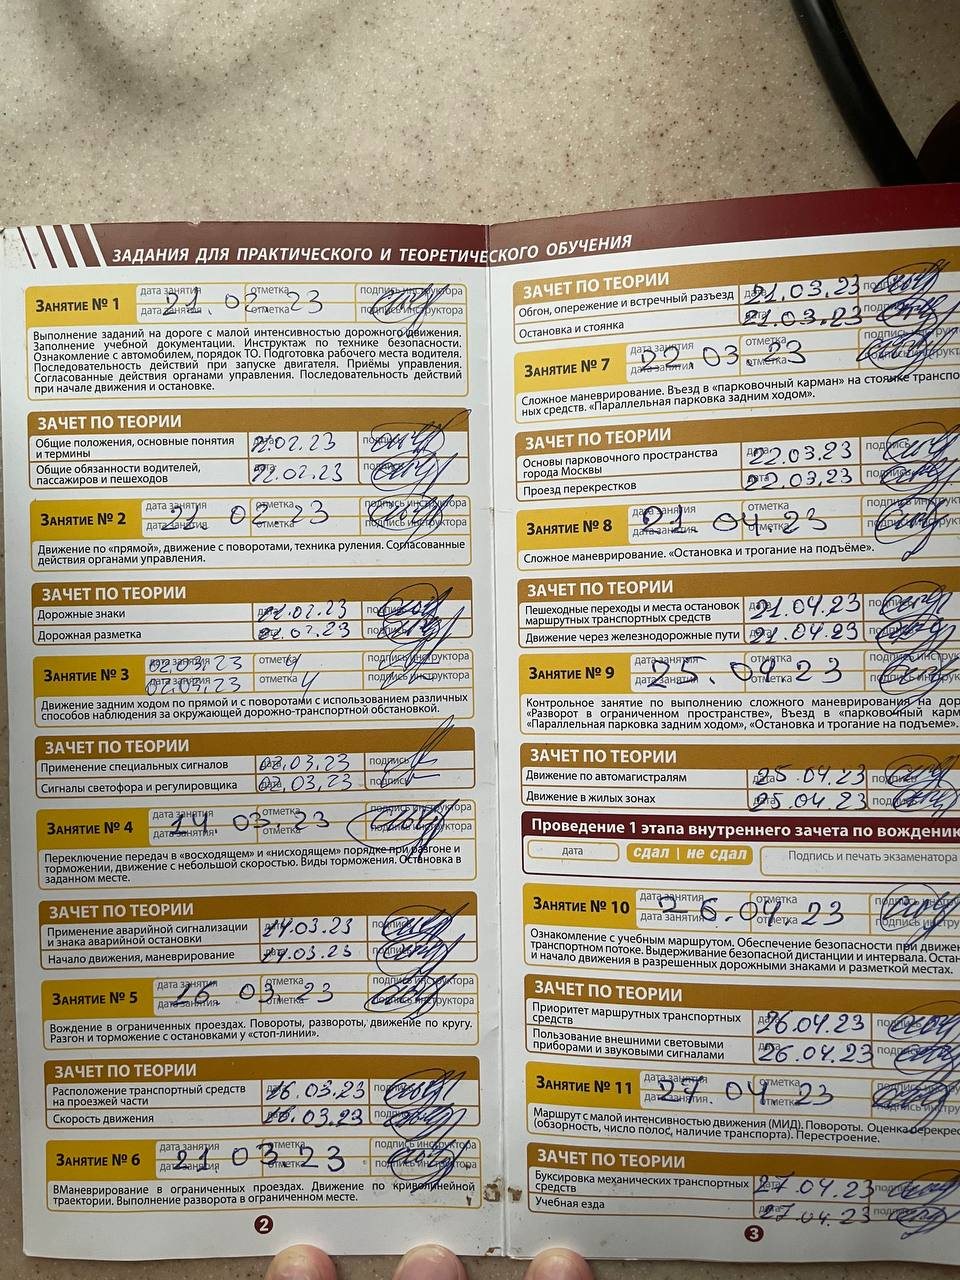 ЗАДАНИЯ ДЛЯ ПРАКТИЧЕСКОГО И ТЕОРЕТИЧЕСКОГО ОБУЧЕНИЯ
ЗАНЯТИЕ № 1
дата занятия отметка подпись инструктора
дата занятия отметка подпись инструктора
21.02 23
Выполнение заданий на дороге с малой интенсивностью дорожного движения.
Заполнение учебной документации. Инструктаж по технике безопасности.
Ознакомление с автомобилем, порядок ТО. Подготовка рабочего места водителя.
Последовательность действий при запуске двигателя. Приёмы управления.
Согласованные действия органами управления. Последовательность действий
при начале движения и остановке.
ЗАЧЕТ ПО ТЕОРИИ
Общие положения, основные понятия
и термины
дата подпись
Общие обязанности водителей,
пассажиров и пешеходов
дата подпись
ЗАНЯТИЕ № 2
дата занятия отметка подпись инструктора
дата занятия отметка подпись инструктора
Движение по «прямой», движение с поворотами, техника руления. Согласованные
действия органами управления.
ЗАЧЕТ ПО ТЕОРИИ
Дорожные знаки дата подпись
Дорожная разметка дата подпись
ЗАНЯТИЕ № 3
дата занятия отметка подпись инструктора
02.03.23 4
дата занятия отметка подпись инструктора
02.03.23 4
Движение задним ходом по прямой и с поворотами с использованием различных
способов наблюдения за окружающей дорожно-транспортной обстановкой.
ЗАЧЕТ ПО ТЕОРИИ
Применение специальных сигналов 02.03.23 подпись
Сигналы светофора и регулировщика 02.03.23 подпись
ЗАНЯТИЕ № 4
дата занятия отметка подпись инструктора
дата занятия отметка подпись инструктора
14.03 23
Переключение передач в «восходящем» и «нисходящем» порядке при разгоне и
торможении, движение с небольшой скоростью. Виды торможения. Остановка в
заданном месте.
ЗАЧЕТ ПО ТЕОРИИ
Применение аварийной сигнализации
и знака аварийной остановки
14.03.23 подпись
Начало движения, маневрирование 14.03.23 подпись
ЗАНЯТИЕ № 5
дата занятия отметка подпись инструктора
дата занятия отметка подпись инструктора
16.03 23
Вождение в ограниченных проездах. Повороты, развороты, движение по кругу.
Разгон и торможение с остановками у «стоп-линии».
ЗАЧЕТ ПО ТЕОРИИ
Расположение транспортный средств
на проезжей части
16.03.23 подпись
Скорость движения 16.03.23 подпись
ЗАНЯТИЕ № 6
дата занятия отметка подпись инструктора
дата занятия отметка подпись инструктора
21 03 23
ВМаневрирование в ограниченных проездах. Движение по криволинейной
траектории. Выполнение разворота в ограниченном месте.
2
ЗАЧЕТ ПО ТЕОРИИ
Обгон, опережение и встречный разъезд 21.03.23 подпись
Остановка и стоянка 21.03.23 подпись
ЗАНЯТИЕ № 7
дата занятия отметка
дата занятия отметка
22 03 23
Сложное маневрирование. Въезд в «парковочный карман» на стоянке трансп
ных средств. «Параллельная парковка задним ходом».
ЗАЧЕТ ПО ТЕОРИИ
Основы парковочного пространства
города Москвы
22.03.23 подпись
Проезд перекрестков 22.03.23 подпись
ЗАНЯТИЕ № 8
дата занятия отметка
дата занятия отметка
21 04 23
Сложное маневрирование. «Остановка и трогание на подъёме».
ЗАЧЕТ ПО ТЕОРИИ
Пешеходные переходы и места остановок
маршрутных транспортных средств
21.04.23 подпись
Движение через железнодорожные пути 21.04.23 подпись
ЗАНЯТИЕ № 9
дата занятия отметка
дата занятия отметка
25.04 23
Контрольное занятие по выполнению сложного маневрирования на дор
«Разворот в ограниченном пространстве», Въезд в «парковочный карм
«Параллельная парковка задним ходом», «Остановка и трогание на подъеме».
ЗАЧЕТ ПО ТЕОРИИ
Движение по автомагистралям 25.04.23 подпись
Движение в жилых зонах 25.04.23 подпись
Проведение 1 этапа внутреннего зачета по вождению
дата сдал | не сдал Подпись и печать экзаменатора
ЗАНЯТИЕ № 10
дата занятия отметка
дата занятия отметка
26.04.23
Ознакомление с учебным маршрутом. Обеспечение безопасности при движе
транспортном потоке. Выдерживание безопасной дистанции и интервала. Остан
и начало движения в разрешенных дорожными знаками и разметкой местах.
ЗАЧЕТ ПО ТЕОРИИ
Приоритет маршрутных транспортных
средств
26.04.23 подпись
Пользование внешними световыми
приборами и звуковыми сигналами
26.04.23 подпись
ЗАНЯТИЕ № 11
дата занятия отметка
дата занятия отметка
27.04.23
Маршрут с малой интенсивностью движения (МИД). Повороты. Оценка перекрес
(обзорность, число полос, наличие транспорта). Перестроение.
ЗАЧЕТ ПО ТЕОРИИ
Буксировка механических транспортных
средств
27.04.23 подпись
Учебная езда 27.04.23 подпись
3